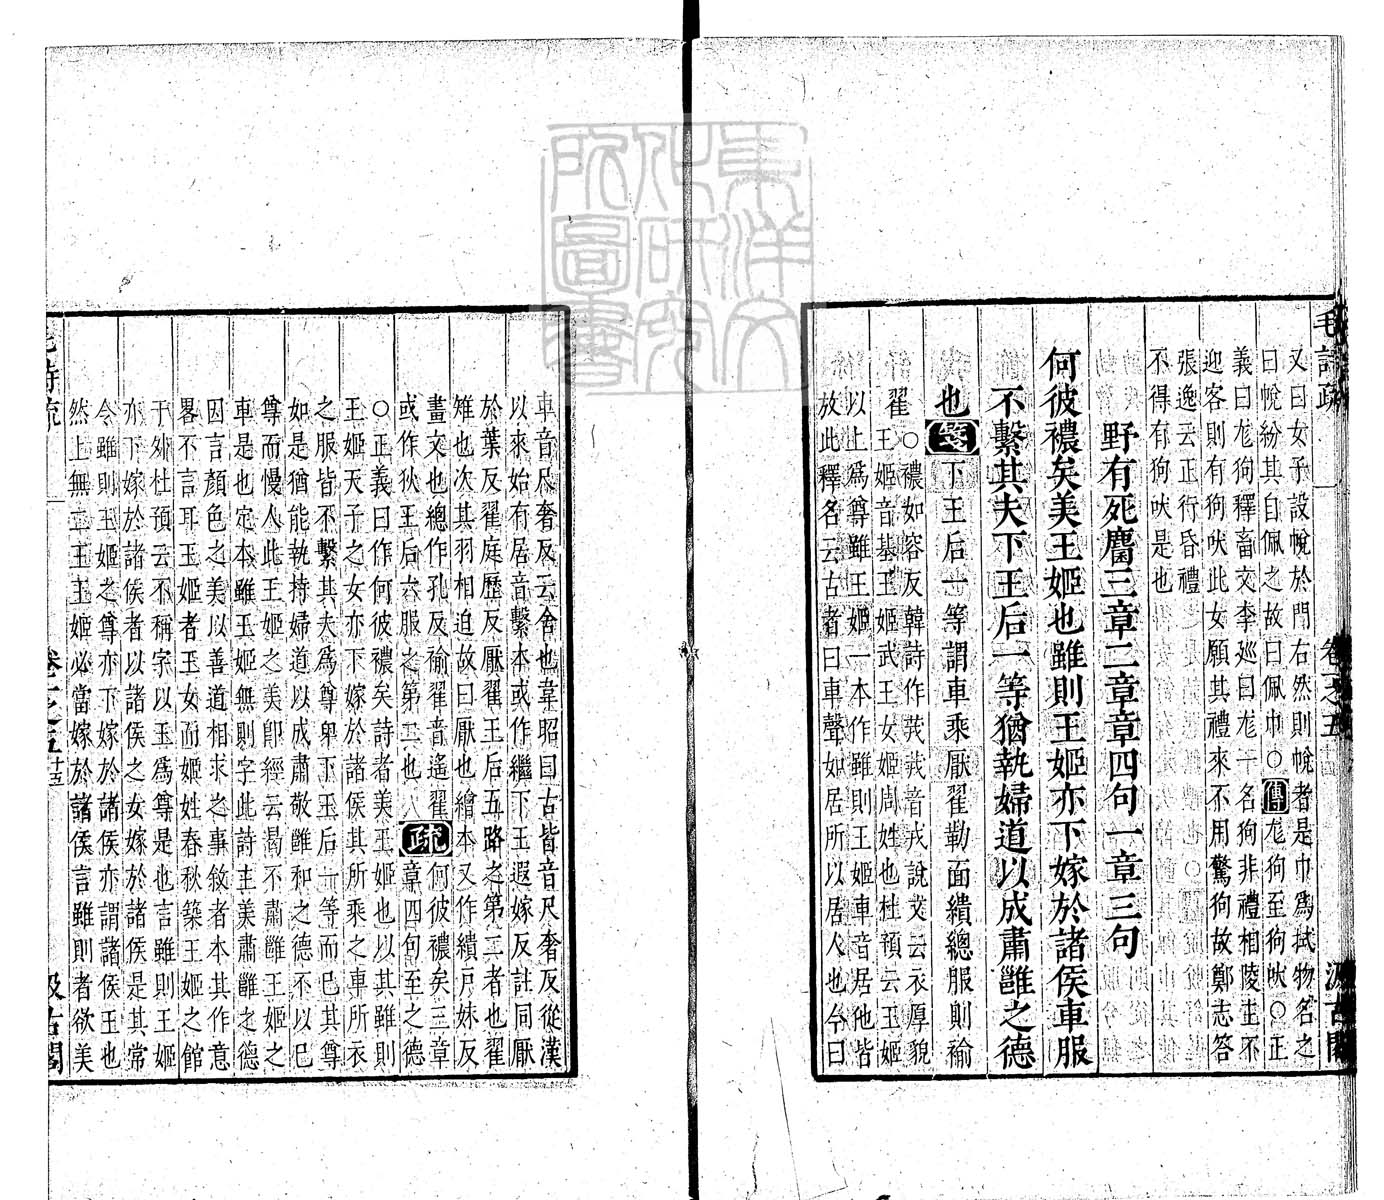 毛詩疏 卷一之五 汲古閣
又曰女子設帨於門右然則帨者是巾爲拭物名之
曰帨紛其自佩之故曰佩巾○傳尨狗至狗吠○正
義曰尨狗釋畜文李巡曰尨一名狗非禮相陵主不
迎客則有狗吠此女願其禮來不用驚狗故鄭志答
張逸云正行昏禮
不得有狗吠是也
野有死麕三章二章章四句一章三句
何彼襛矣美王姬也雖則王姬亦下嫁於諸侯車服
不繫其夫下王后一等猶執婦道以成肅雝之德
也箋下王后一等謂車乘厭翟勒面繢總服則褕
翟○襛如容反韓詩作莪莪音戎說文云衣厚貌
王姬音基王姬武王女姬周姓也杜預云王姬
以上爲尊雖王姬一本作雖則王姬車音居他皆
放此釋名云古者曰車聲如居所以居人也今曰
車音尺奢反云舍也韋昭曰古皆音尺奢反從漢
以來始有居音繫本或作繼下王遐嫁反註同厭
於葉反翟庭歷反厭翟王后五路之第二者也翟
雉也次其羽相迫故曰厭也繪本又作繢戶妹反
畫文也總作孔反褕翟音遙翟
或作狄王后六服之第二也疏何彼襛矣三章
章四句至之德
○正義曰作何彼襛矣詩者美王姬也以其雖則
王姬天子之女亦下嫁於諸侯其所乘之車所衣
之服皆不繫其夫爲尊卑下王后一等而已其尊
如是猶能執持婦道以成肅敬雝和之德不以已
尊而慢人此王姬之美卽經云曷不肅雝王姬之
車是也定本雖王姬無則字此詩主美肅雝之德
因言顏色之美以善道相求之事敘者本其作意
畧不言耳王姬者王女而姬姓春秋築王姬之館
于外杜預云不稱字以王爲尊是也言雖則王姬
亦下嫁於諸侯者以諸侯之女嫁於諸侯是其常
令雖則王姬之尊亦下嫁於諸侯亦謂諸侯王也
然上無二王王姬必當嫁於諸侯言雖則者欲美
毛詩疏 卷一之五 十五 汲古閣
東洋文化研究所圖書